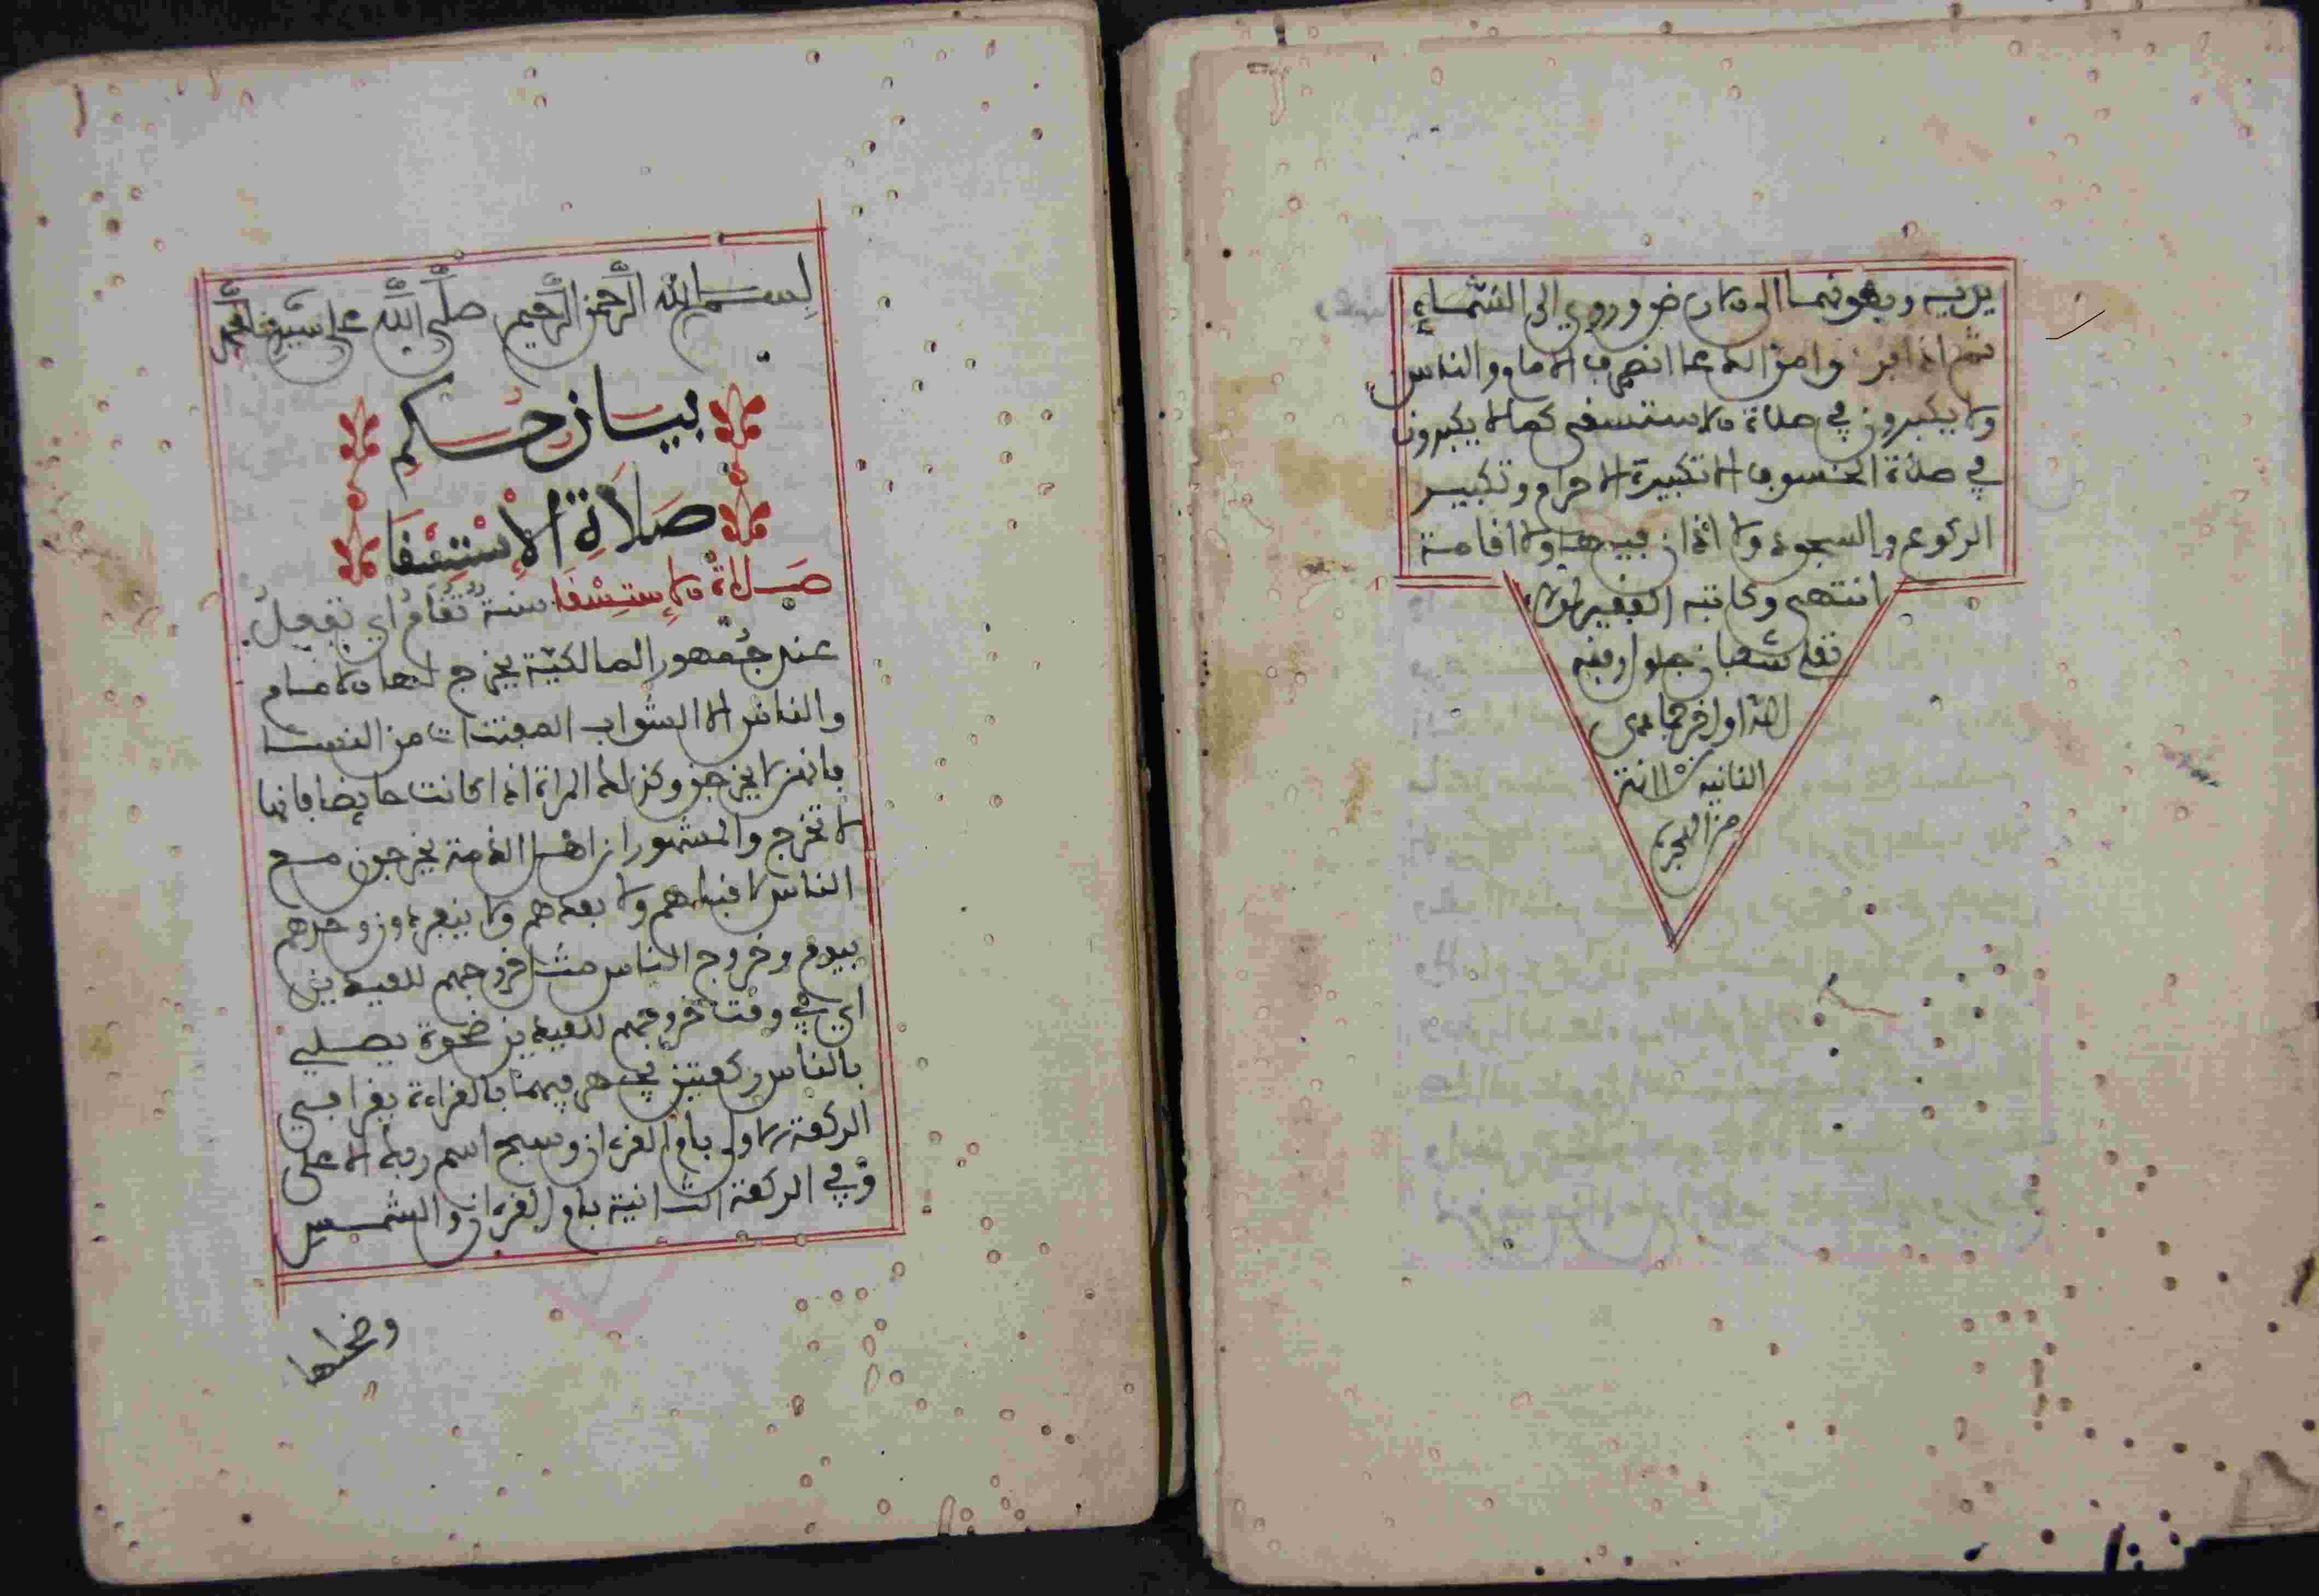 يديه وبطونهما الى الارض وروي الى السماء
ثم اذا من الدعا انصرف الامام والناس
ولا يكبرون في صلاة الاستسقى كما لا يكبرون
في صلاة الخسوف الا تكبيرة الاحرام وتكبير
الركوع والسجود ولا اذان فيها ولا اقامة
انتهى وكاتبه الفقير لمولاه
تعلى شعبان جلول وفقه
الله اواخر جمادى
الثانية
من الهجرة
بسم الله الرحمن الرحيم صلى الله على سيدنا محمد
بيان حكم
صلاة الإستسقا
صلاة الاستسقا سنة تقام اي تفعل
عند جمهور المالكية يخرج لها الامام
والناس الا الشواب المفتنات من النسا
فانهن لا يخرجن وكذلك المراة اذا كانت حايضا فانها
لا تخرج والمشهور ان اهل الذمة يخرجون مع
الناس لا قبلهم ولا بعدهم ولا ينفردون وحدهم
بيوم وخروج الناس مثل خروجهم للعيدين
اي في وقت خروجهم للعيدين ضحوة يصلي
بالناس ركعتين يجهر فيهما بالقراءة يقرا في
الركعة الاولى بام القرءان وسبح اسم ربك الاعلى
وفي الركعة الثانية بام القرءان والشمس
وضحاها